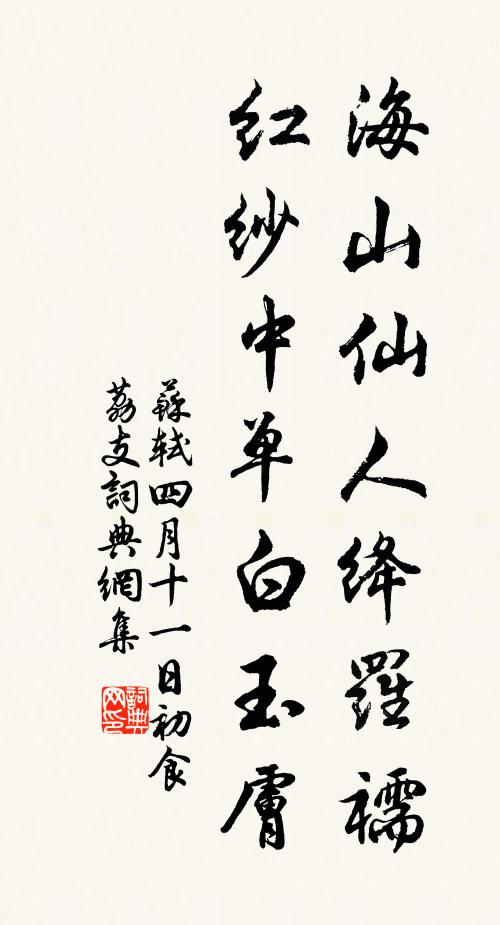 海山仙人绛羅襦
紅紗中单白玉膚
蘇軾四月十一日初食
荔支詞典網集
詞典网印